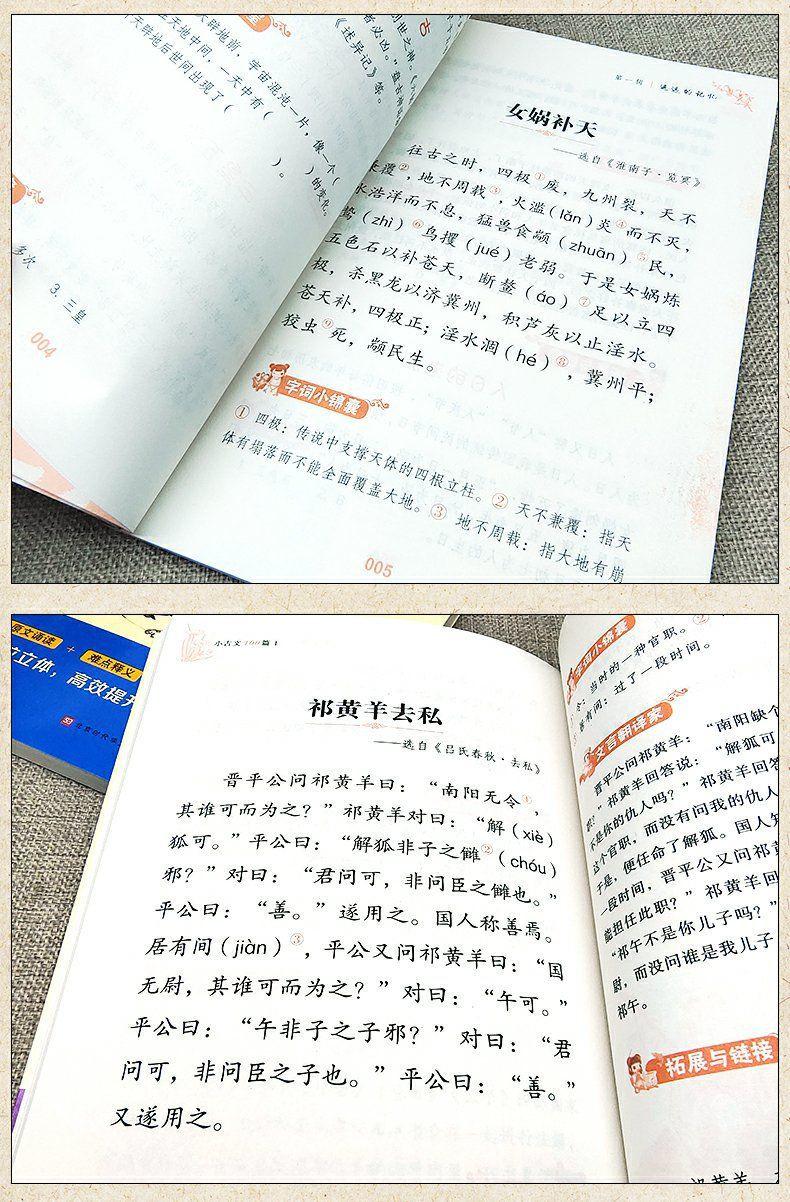 古
创世之神。
者必凶。”
《述异记》
天辟地前，宇宙混沌一片，像一个（
天地中间，一天中有（ ）的变化。
天辟地后世间出现了（ ）。
多次 3. 三皇
004
第一辑 | 遥远的记忆
女娲补天
——选自《淮南子·览冥》
往古之时，四极①废，九州裂，天不
兼覆②，地不周载③，火滥（lǎn）炎④而不灭，
水浩洋而不息，猛兽食颛（zhuān）⑤民，
鸷（zhì）⑥鸟攫（jué）老弱。于是女娲炼
五色石以补苍天，断鳌（áo）⑦足以立四
极，杀黑龙以济冀州，积芦灰以止淫水。
苍天补，四极正；淫水涸（hé）⑧，冀州平；
狡虫⑨死，颛民生。
字词小锦囊
① 四极：传说中支撑天体的四根立柱。② 天不兼覆：指天
体有塌落而不能全面覆盖大地。③ 地不周载：指大地有崩
005
原文诵读 + 难点释义
立体，高效提升
小古文100篇1
祁黄羊去私
——选自《吕氏春秋·去私》
晋平公问祁黄羊曰：“南阳无令①，
其谁可而为之？”祁黄羊对曰：“解（xiè）
狐可。”平公曰：“解狐非子之雠②（chóu）
邪？”对曰：“君问可，非问臣之雠也。”
平公曰：“善。”遂用之。国人称善焉。
居有间（jiàn）③，平公又问祁黄羊曰：“国
无尉，其谁可而为之？”对曰：“午可。”
平公曰：“午非子之子邪？”对曰：“君
问可，非问臣之子也。”平公曰：“善。”
又遂用之。
字词小锦囊
令：当时的一种官职。②
居有间：过了一段时间。
文言翻译家
晋平公问祁黄羊：“南阳缺个
？”祁黄羊回答说：“解狐可
不是你的仇人吗？”祁黄羊回答
这个官职，而没有问我的仇人
于是，便任命了解狐。国人
一段时间，晋平公又问祁黄
能担任此职？”祁黄羊回
“祁午不是你儿子吗？”
尉，而没问谁是我儿子
祁午。
拓展与链接
祁黄羊